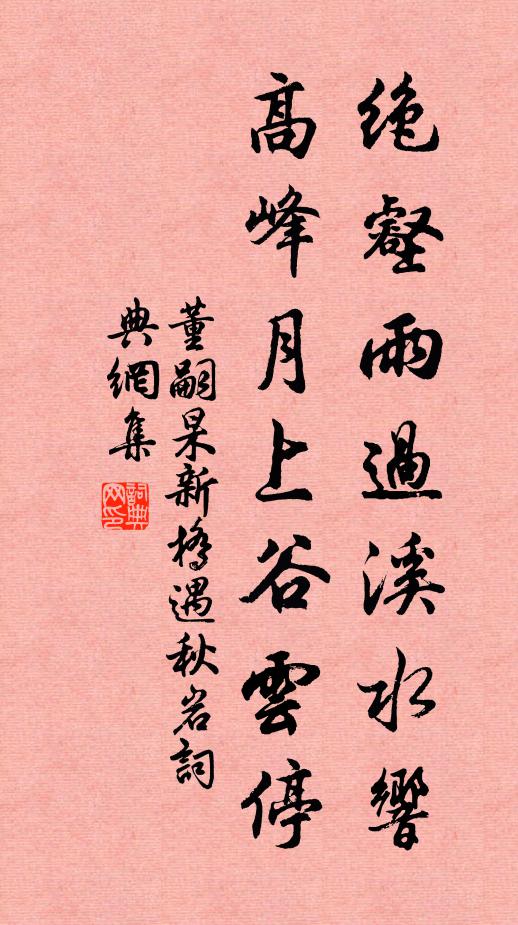 絶壑雨過溪水響
高峰月上谷雲停
董嗣杲新橋遇秋岩詞
典網集
詞典
网印